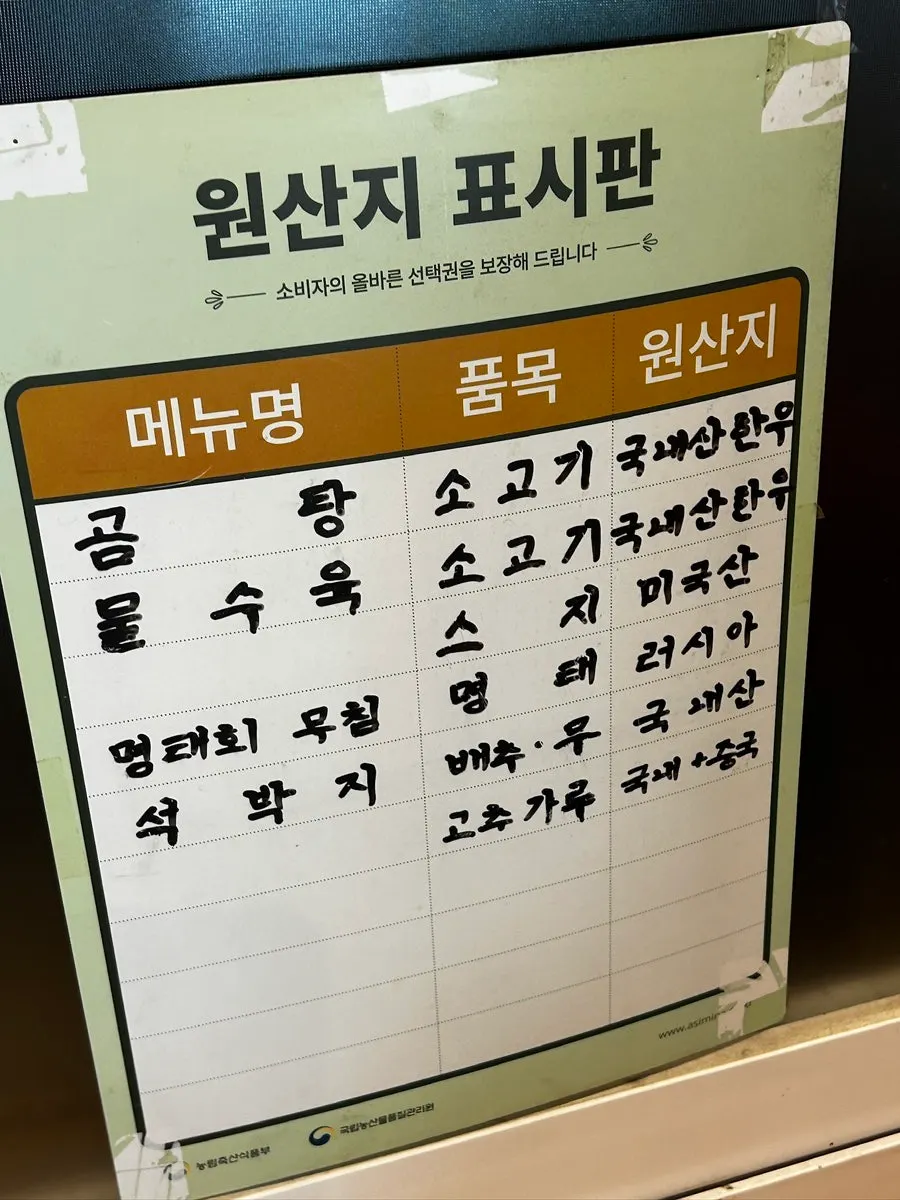 원산지 표시판
소비자의 올바른 선택권을 보장해 드립니다
메뉴명 품목 원산지
곰 탕 소고기 국내산한우
물 수 육 소고기 국내산한우
스 지 미국산
명태회 무침 명 태 러시아
석 박 지 배추·무 국내산
고추가루 국내+중국
농림축산식품부 국립농산물품질관리원